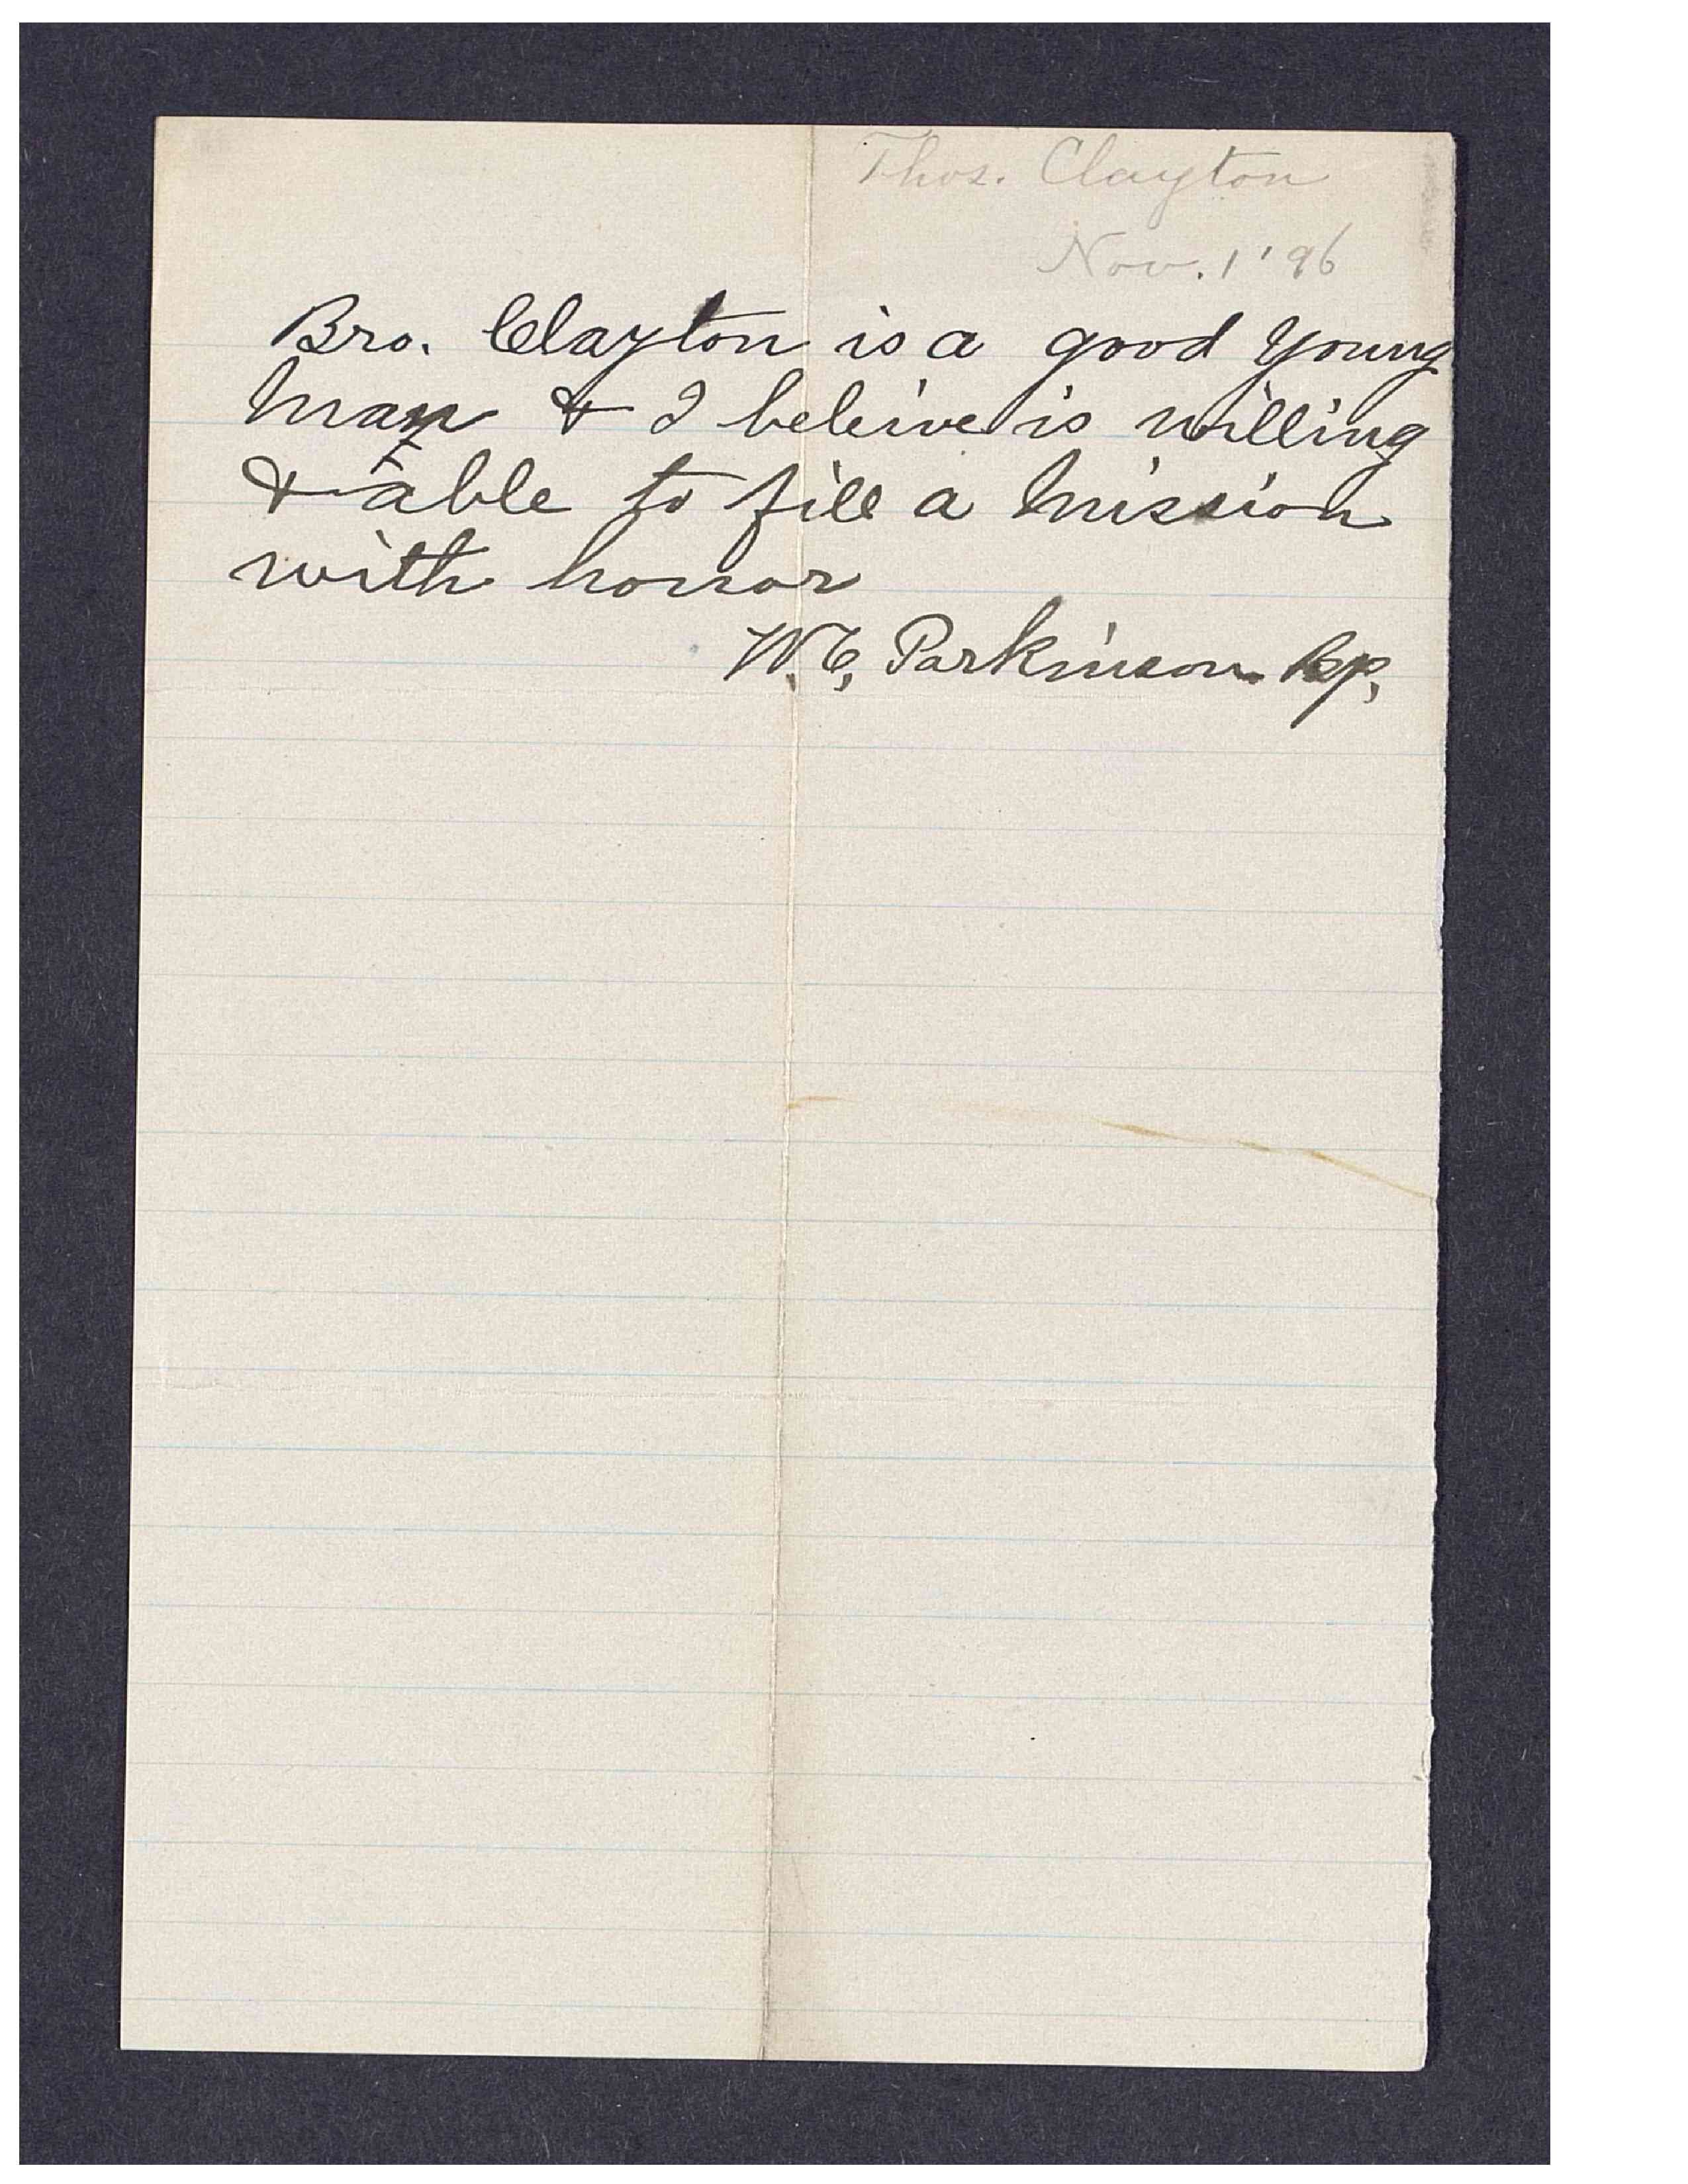 Thos. Clayton
Nov. 1 '96
Bro. Clayton is a good young
man & I beleive is willing
& able to fill a mission
with honor
W. C, Parkinson Bp,